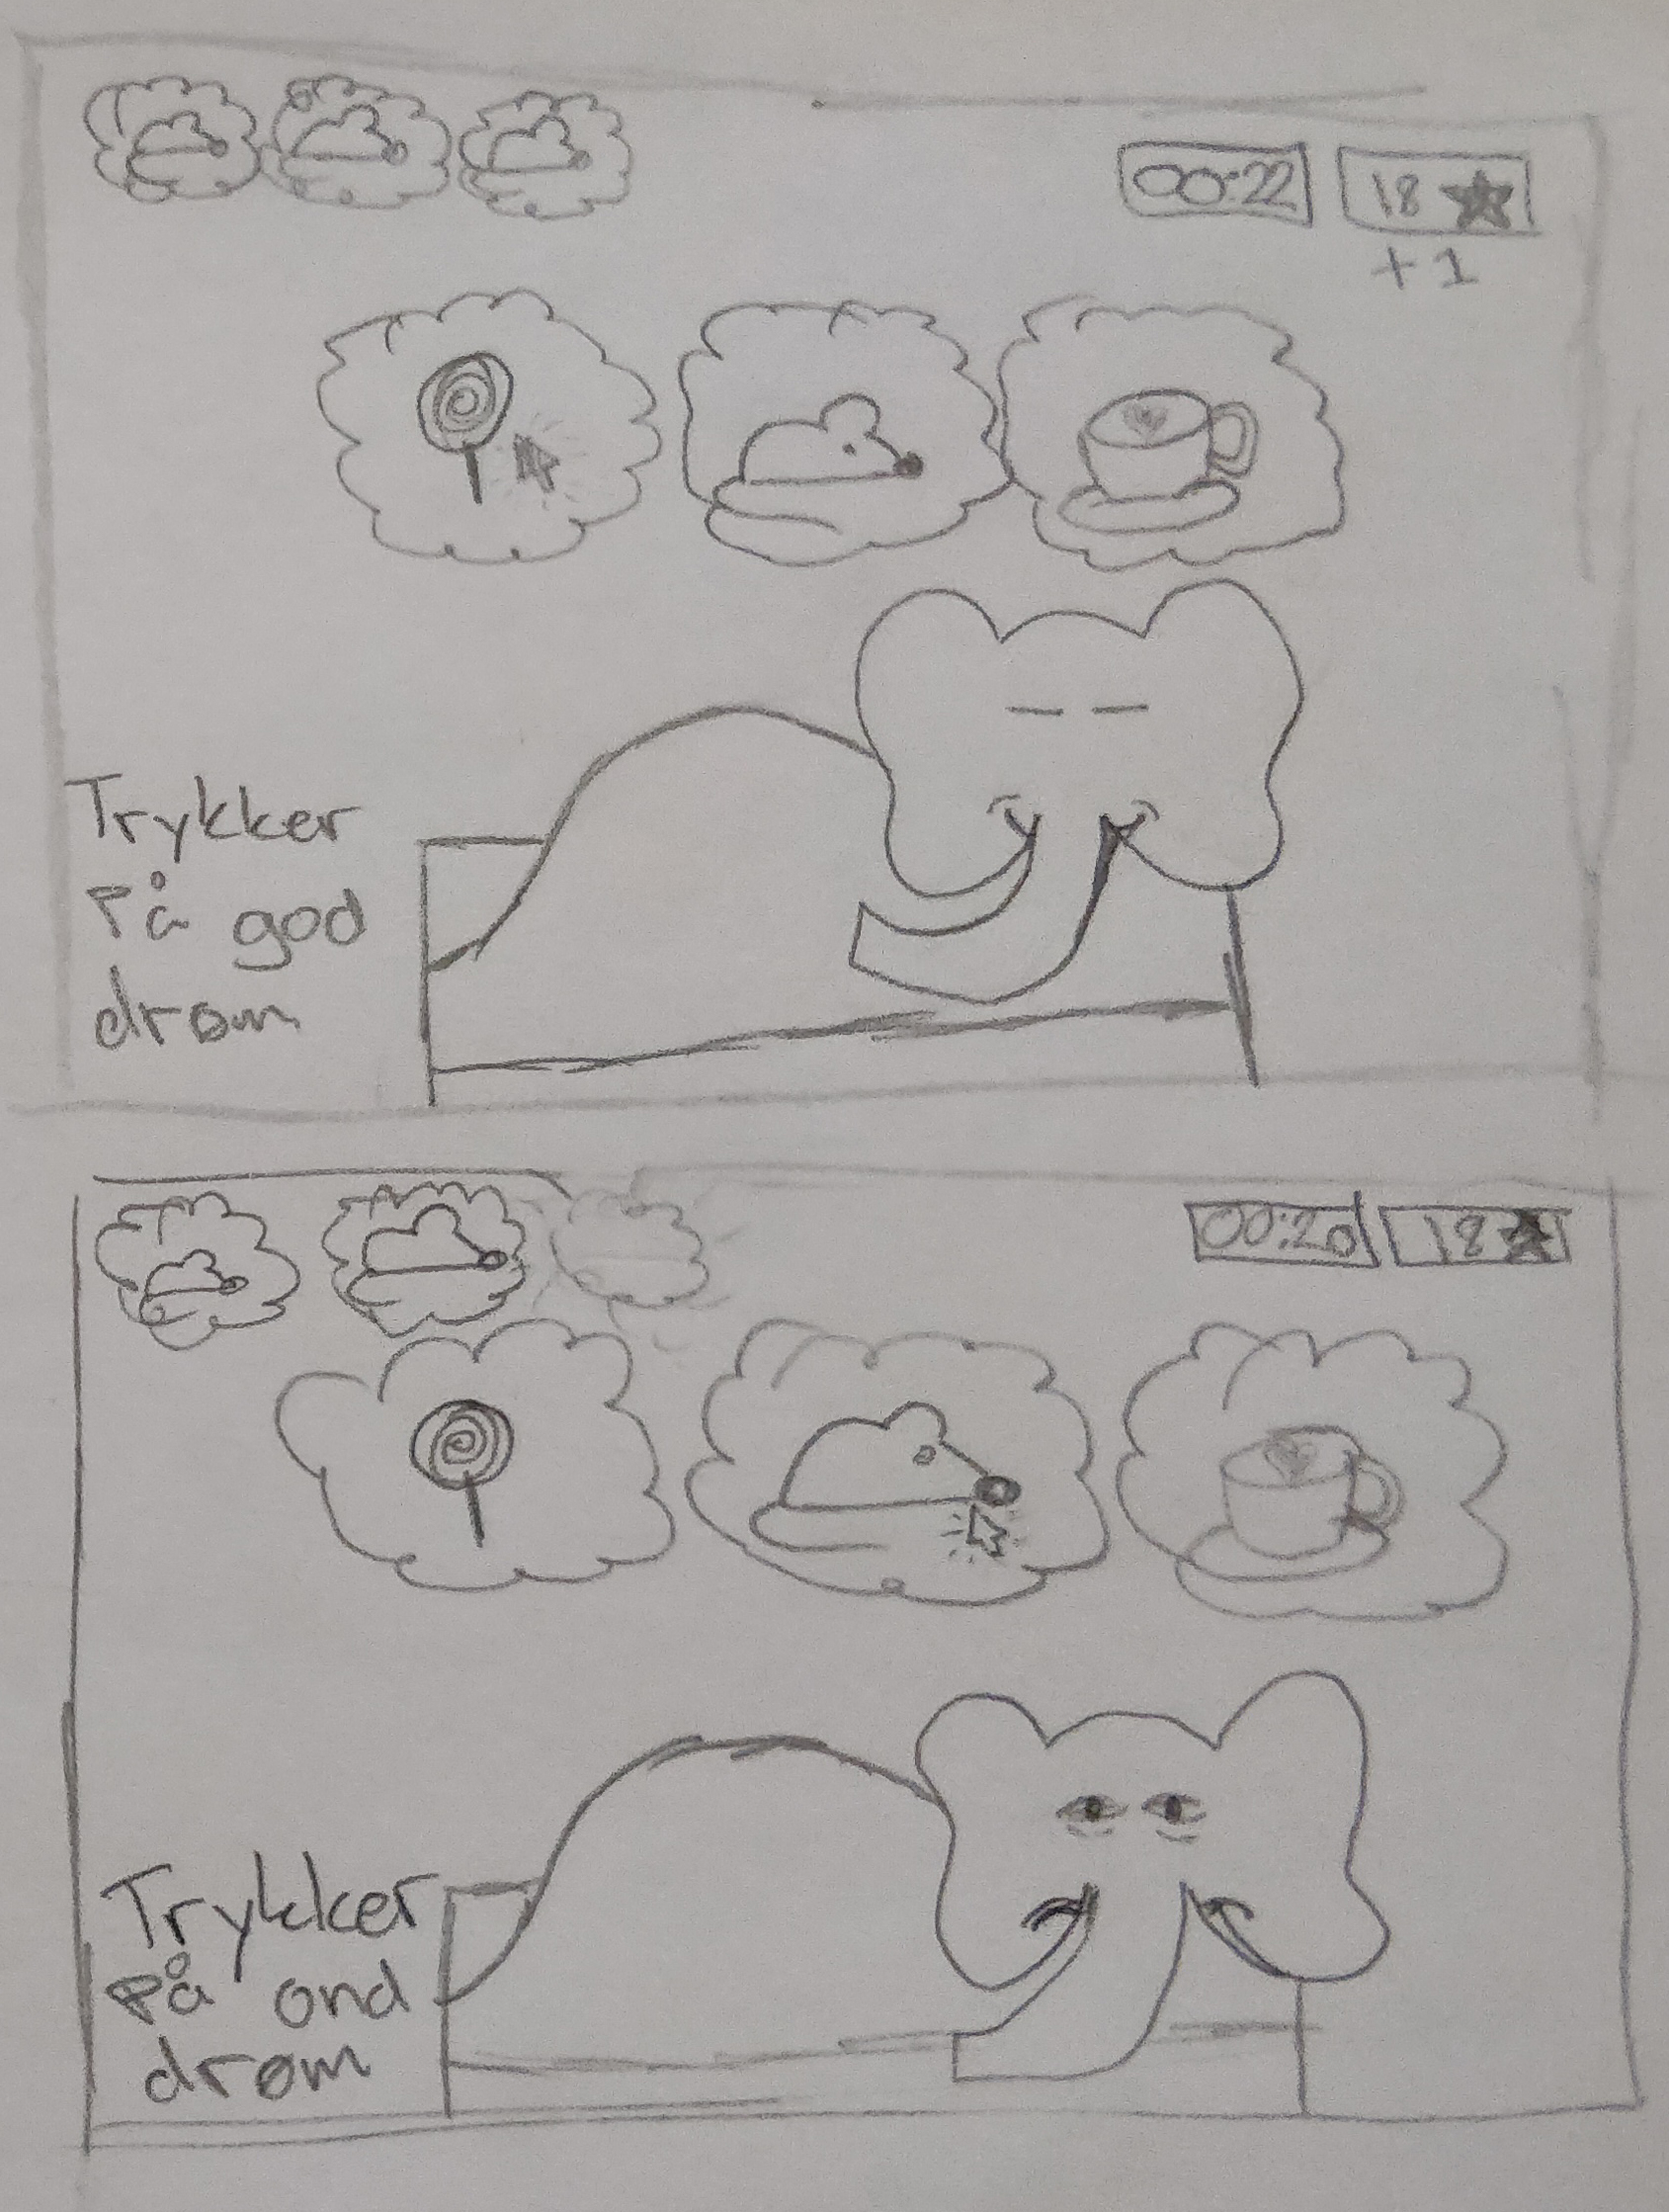 00:22 18
+1
Trykker
På god
drøm
00:20 18
Trykker
På ond
drøm